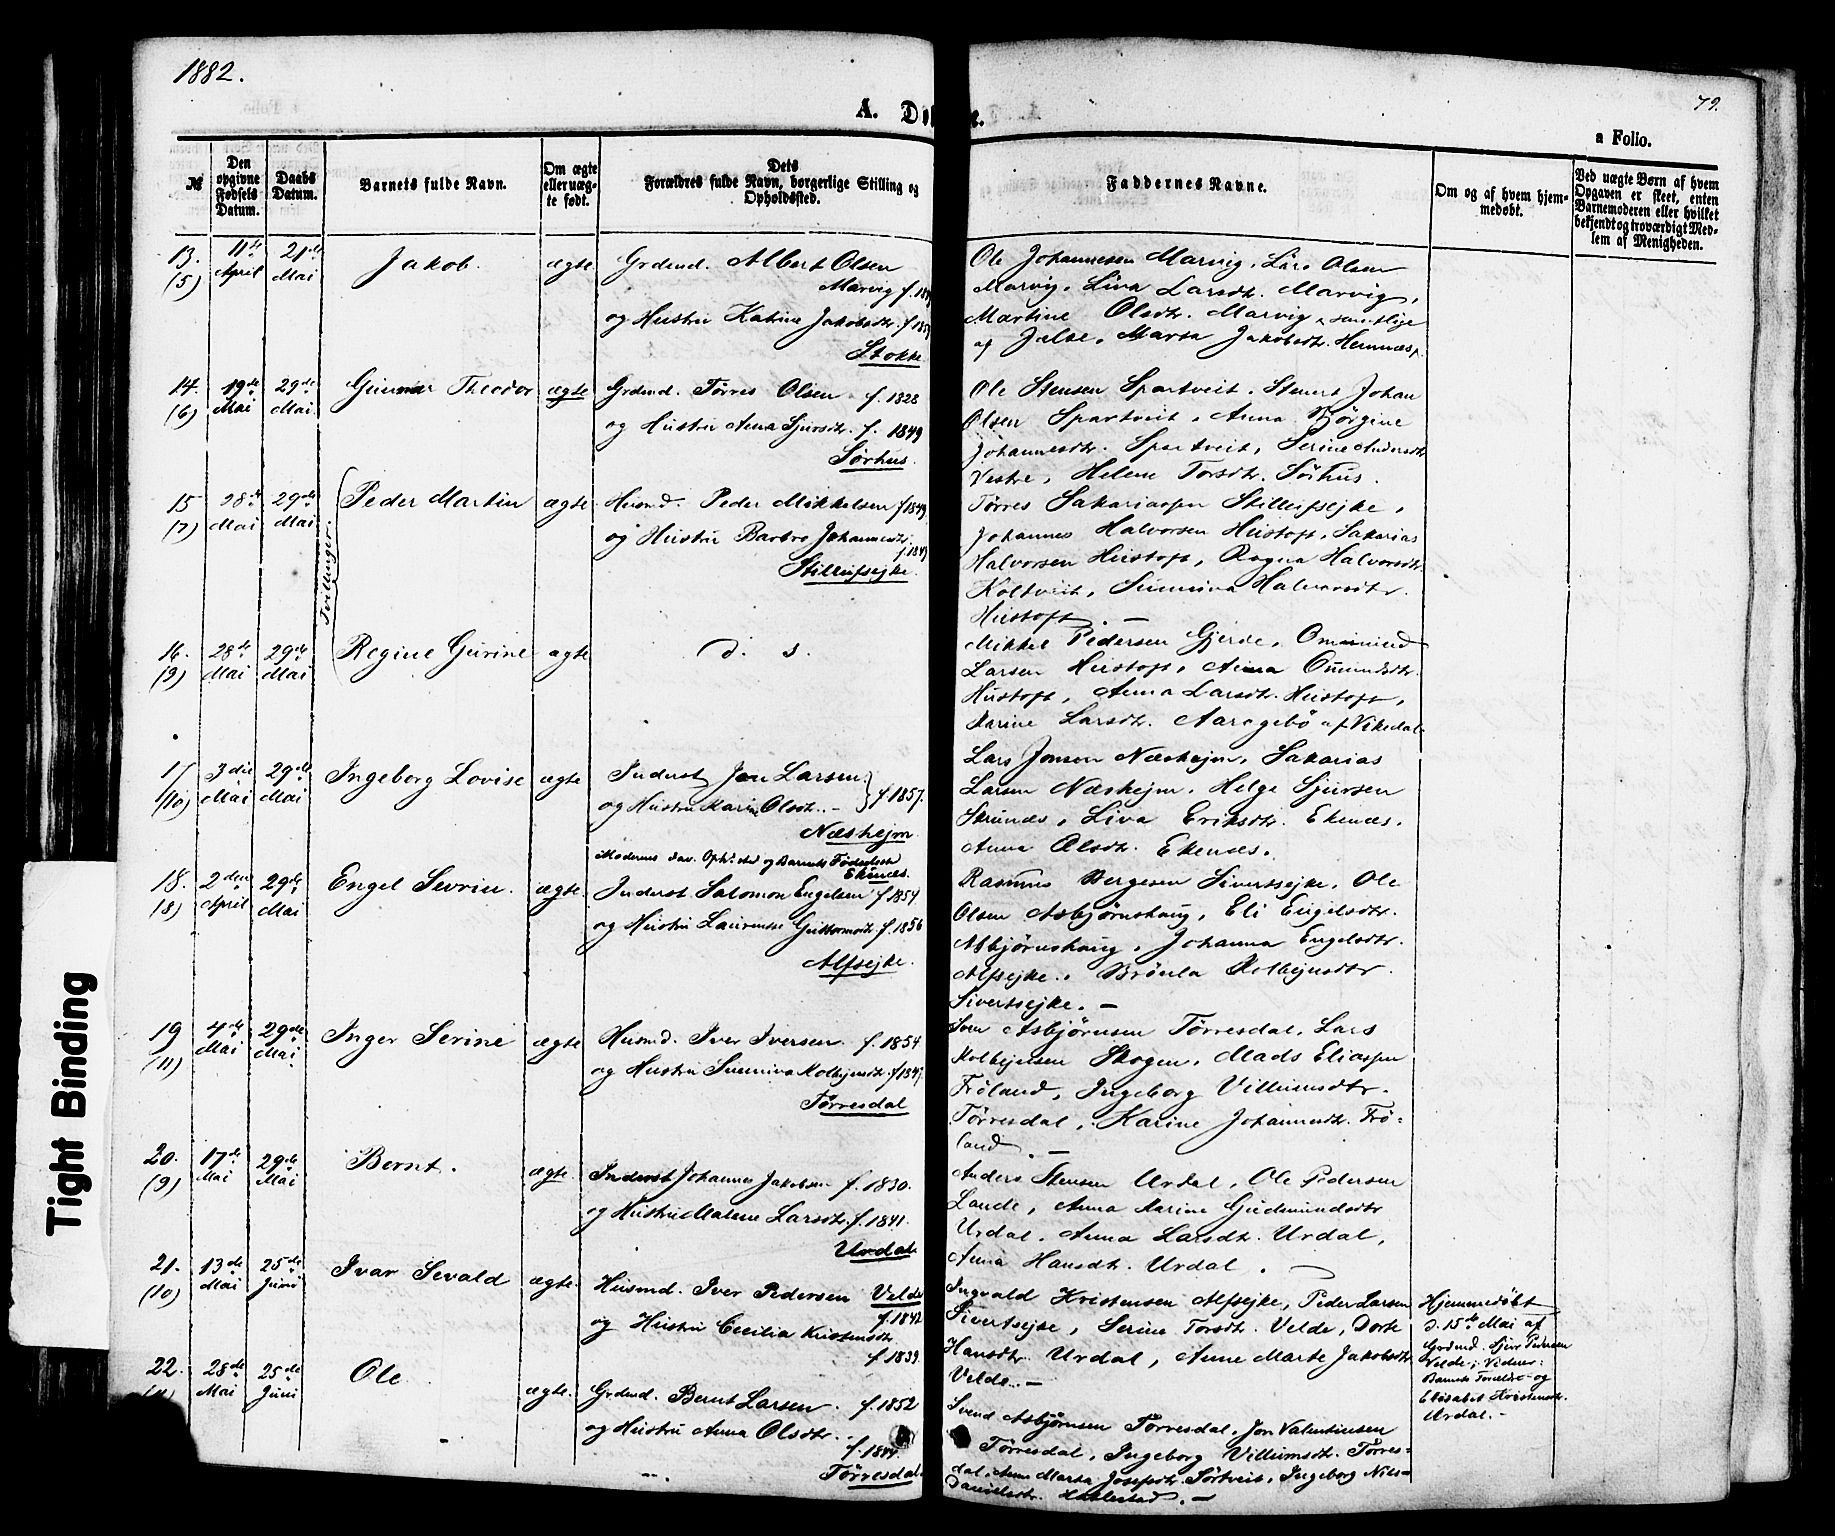 1882.
79.
A. Dø e.
a Folio.
№
Den
opgivne
Fødsels
Datum.
Daabs
Datum.
Barnets fulde Navn.
Om ægte
eller uæg-
te født.
Dets
Forældres fulde Navn, borgerlige Stilling og
Opholdssted.
Faddernes Navne.
Om og af hvem hjem-
medøbt.
Ved uægte Børn af hvem
Opgaven er skeet, enten
Barnemoderen eller hvilket
bekjendt og troværdigt Med-
lem af Menigheden.
13. (5)
11te April
21de Mai
Jakob.
ægte
Grdmd. Albert Olsen
Marvig
og Hustru Katrine Jakobsdtr.
Stokke
Ole Johannesen Marvig, Lars Olsen
Marvig, Liva Larsdtr. Marvig,
Martine Olsdtr. Marvig, samtlige
af Jelse, Marta Jakobsdtr.
14. (6)
19de Mai
29de Mai
Gunnar Theodor
ægte
Grdmd. Tørres Olsen f. 1828
og Hustru Anna Sjursdtr. f. 1849
Sørhus.
Ole Stensen Spartveit, Johan
Olsen Spartveit, Anna Bjørgine
Johannesdtr. Spartveit, Serine Andersdtr.
Vestre, Helene Torsdtr. Sørhus.
15 (7)
28de Mai
29de Mai
Tvillinger.
Peder Martin
ægte
Husmd. Peder Mikkelsen f 1849
og Hustru Barbro Johannesdtr.
Stillufsejke.
Tørres Sakariassen Stillufsejke,
Johannes Halvorsen Hustoft, Sakarias
Halvorsen Hustoft, Ragna Halvorsdtr.
Koltveit, Sunniva Halvorsdtr.
Hustoft. —
16. (9)
28de Mai
29de Mai
Regine Gurine
ægte
d. s.
Mikkel Pedersen Gjerde, Ommund
Larsen Hustoft, Anna Omundsdtr.
Hustoft, Anna Larsdtr. Hustoft,
Karine Larsdtr. af Vikedal
17 (10)
3die Mai
29de Mai
Ingeborg Lovise
ægte
Inderst Jon Larsen
og Hustru Karin Olsdtr. — } f. 1857.
Næshejm
Modernes nav. Opholdssted og Barnets Fødested
Ekenæs.
Lars Jonsen Næshejm, Sakarias
Larsen Næshejm, Helge Sjursen
Skrunes, Liva Eriksdtr. Ekenæs,
Anna Olsdtr. Ekenæs.
18. (8)
2den April
29de Mai
Engel Sevrin.
ægte
Inderst Salomon Engelsen f 1854
og Hustru Laurense Guttormsdtr. f. 1856
Alfsejke.
Rasmus Bergesen Sivertsejke, Ole
Olsen Asbjørnshaug, Eli Engelsdtr.
Asbjørnshaug, Johanna Engelsdtr.
Alfsejke, Brønla Kolbejnsdtr.
Sivertsejke. —
19 (11)
4de Mai
29de Mai
Inger Serine
ægte
Husmd. Iver Iversen f. 1854
og Hustru Sunniva Kolbejnsdtr. f 1847.
Tørresdal
Sven Asbjørnsen Tørresdal, Lars
Kolbejnsen Skogen, Mads Eliassen
Frøland, Ingeborg Villumsdtr.
Tørresdal, Karine Johannesdtr. Frø-
land. —
20. (9)
17de Mai
29de Mai
Bernt.
ægte.
Inderst Johannes Jakobsen f. 1830.
og Hustru Malene Larsdtr. f. 1841.
Urdal.
Anders Stensen Urdal, Ole Pedersen
Lande, Anna Karine Gudmundsdtr
Urdal, Anna Larsdtr. Urdal,
Anna Hansdtr. Urdal. —
21. (10)
13de Mai
25de Juni
Ivar Sevald
ægte.
Husmd. Iver Pedersen Velde
f. 1842
og Hustru Cecilia Kristensdtr
f. 1839
Ingvald Kristensen Alfsejke, Peder Larsen
Sivertsejke, Serine Torsdtr. Velde, Dorte
Hansdtr Urdal, Anne Marte Jakobsdtr.
Velde. —
Hjemmedøbt
d. 15de Mai af
Grdmd. Sjur Pedersen
Velde; Vidner:
Barnets Forældre og
Elisabet Kristensdtr.
Urdal. —
22.
28de Mai
25de Juni
Ole
ægte.
Grdmd. Bernt Larsen. f. 1852
og Hustru Anna Olsdtr.
f. 1844.
Tørresdal.
Svend Asbjørnsen Tørresdal, Jon Valentinsen
Tørresdal, Ingeborg Villumsdtr. Tørres-
dal, Anne Marta Josefsdtr. Sørtveit, Ingeborg Nils-
Danielsdtr. —
Tight Binding